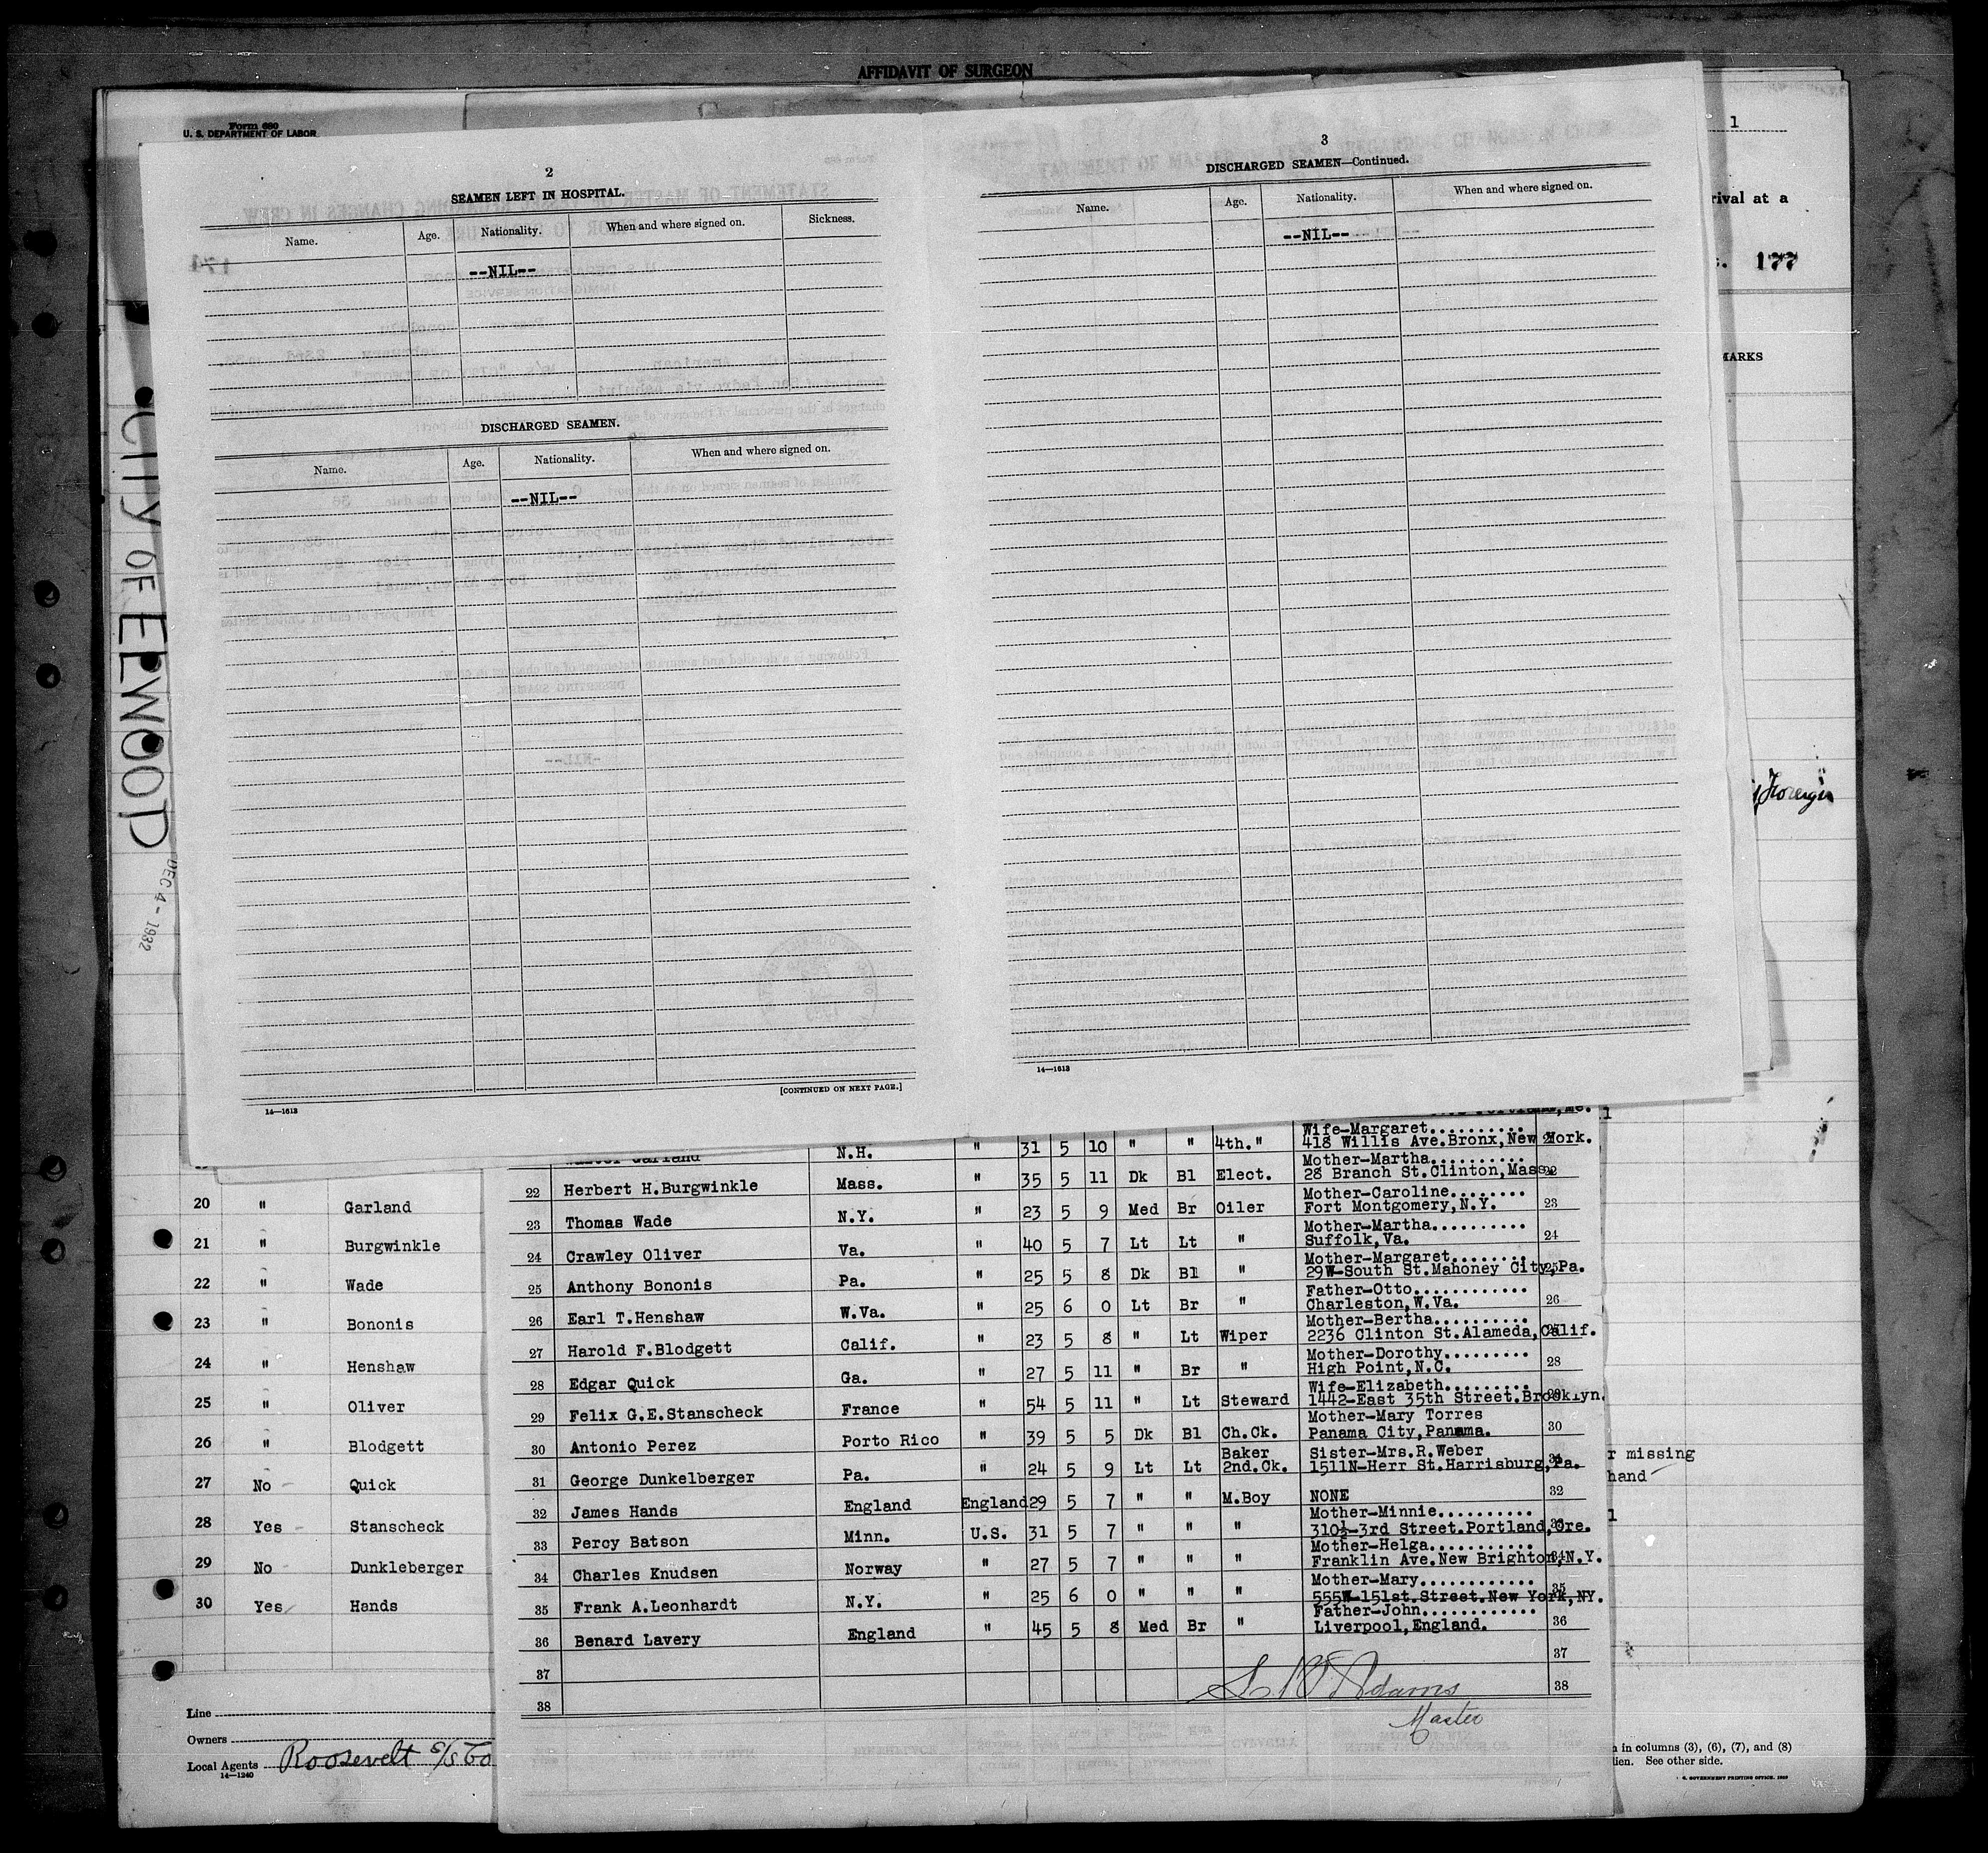 AFFIDAVIT OF SURGEON
Form 680
U. S. DEPARTMENT OF LABOR
1
rival at a
177
MARKS
Foreign
CITY OF ELWOOD
DEC 4 - 1932
2
SEAMEN LEFT IN HOSPITAL.
Name. Age. Nationality. When and where signed on. Sickness.
--NIL--
DISCHARGED SEAMEN.
Name. Age. Nationality. When and where signed on.
--NIL--
[CONTINUED ON NEXT PAGE.]
14—1613
3
DISCHARGED SEAMEN—Continued.
Name. Age. Nationality. When and where signed on.
--NIL--
14—1613
Wife-Margaret..........
Garland N.H. " 31 5 10 " " 4th." 418 Willis Ave.Bronx,New York.
Mother-Martha..........
22 Herbert H.Burgwinkle Mass. " 35 5 11 Dk Bl Elect. 28 Branch St.Clinton,Mass. 22
Mother-Caroline........
23 Thomas Wade N.Y. " 23 5 9 Med Br Oiler Fort Montgomery,N.Y. 23
Mother-Martha..........
24 Crawley Oliver Va. " 40 5 7 Lt Lt " Suffolk,Va. 24
Mother-Margaret........
25 Anthony Bononis Pa. " 25 5 8 Dk Bl " 29W-South St.Mahoney City,Pa. 25
Father-Otto............
26 Earl T.Henshaw W.Va. " 25 6 0 Lt Br " Charleston,W.Va. 26
Mother-Bertha..........
27 Harold F.Blodgett Calif. " 23 5 8 " Lt Wiper 2236 Clinton St.Alameda,Calif. 27
Mother-Dorothy.........
28 Edgar Quick Ga. " 27 5 11 " Br " High Point,N.C. 28
Wife-Elizabeth.........
29 Felix G.E.Stanscheck France " 54 5 11 " Lt Steward 1442-East 35th Street.Brooklyn. 29
Mother-Mary Torres
30 Antonio Perez Porto Rico " 39 5 5 Dk Bl Ch.Ck. Panama City,Panama. 30
Baker Sister-Mrs.R.Weber
31 George Dunkelberger Pa. " 24 5 9 Lt Lt 2nd.Ck. 1511N-Herr St.Harrisburg,Pa. 31
32 James Hands England England 29 5 7 " " M.Boy NONE 32
Mother-Minnie..........
33 Percy Batson Minn. U.S. 31 5 7 " " " 310½-3rd Street.Portland,Ore. 33
Mother-Helga...........
34 Charles Knudsen Norway " 27 5 7 " " " Franklin Ave.New Brighton,N.Y. 34
Mother-Mary............
35 Frank A.Leonhardt N.Y. " 25 6 0 " " " 555W-151st.Street.New York,NY. 35
Father-John............
36 Benard Lavery England " 45 5 8 Med Br " Liverpool,England. 36
37 37
38 38
Adams
Master
20 " Garland
21 " Burgwinkle
22 " Wade
23 " Bononis
24 " Henshaw
25 " Oliver
26 " Blodgett
27 No - Quick
28 Yes - Stanscheck
29 No - Dunkleberger
30 Yes Hands
r missing
hand
Line
Owners
Local Agents Roosevelt S/S Co
14—1240
in columns (3), (6), (7), and (8)
See other side.
GOVERNMENT PRINTING OFFICE